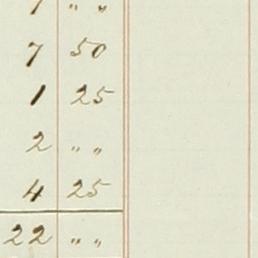 7 " "
7 50
1 25
2 " "
4 25
22 " "